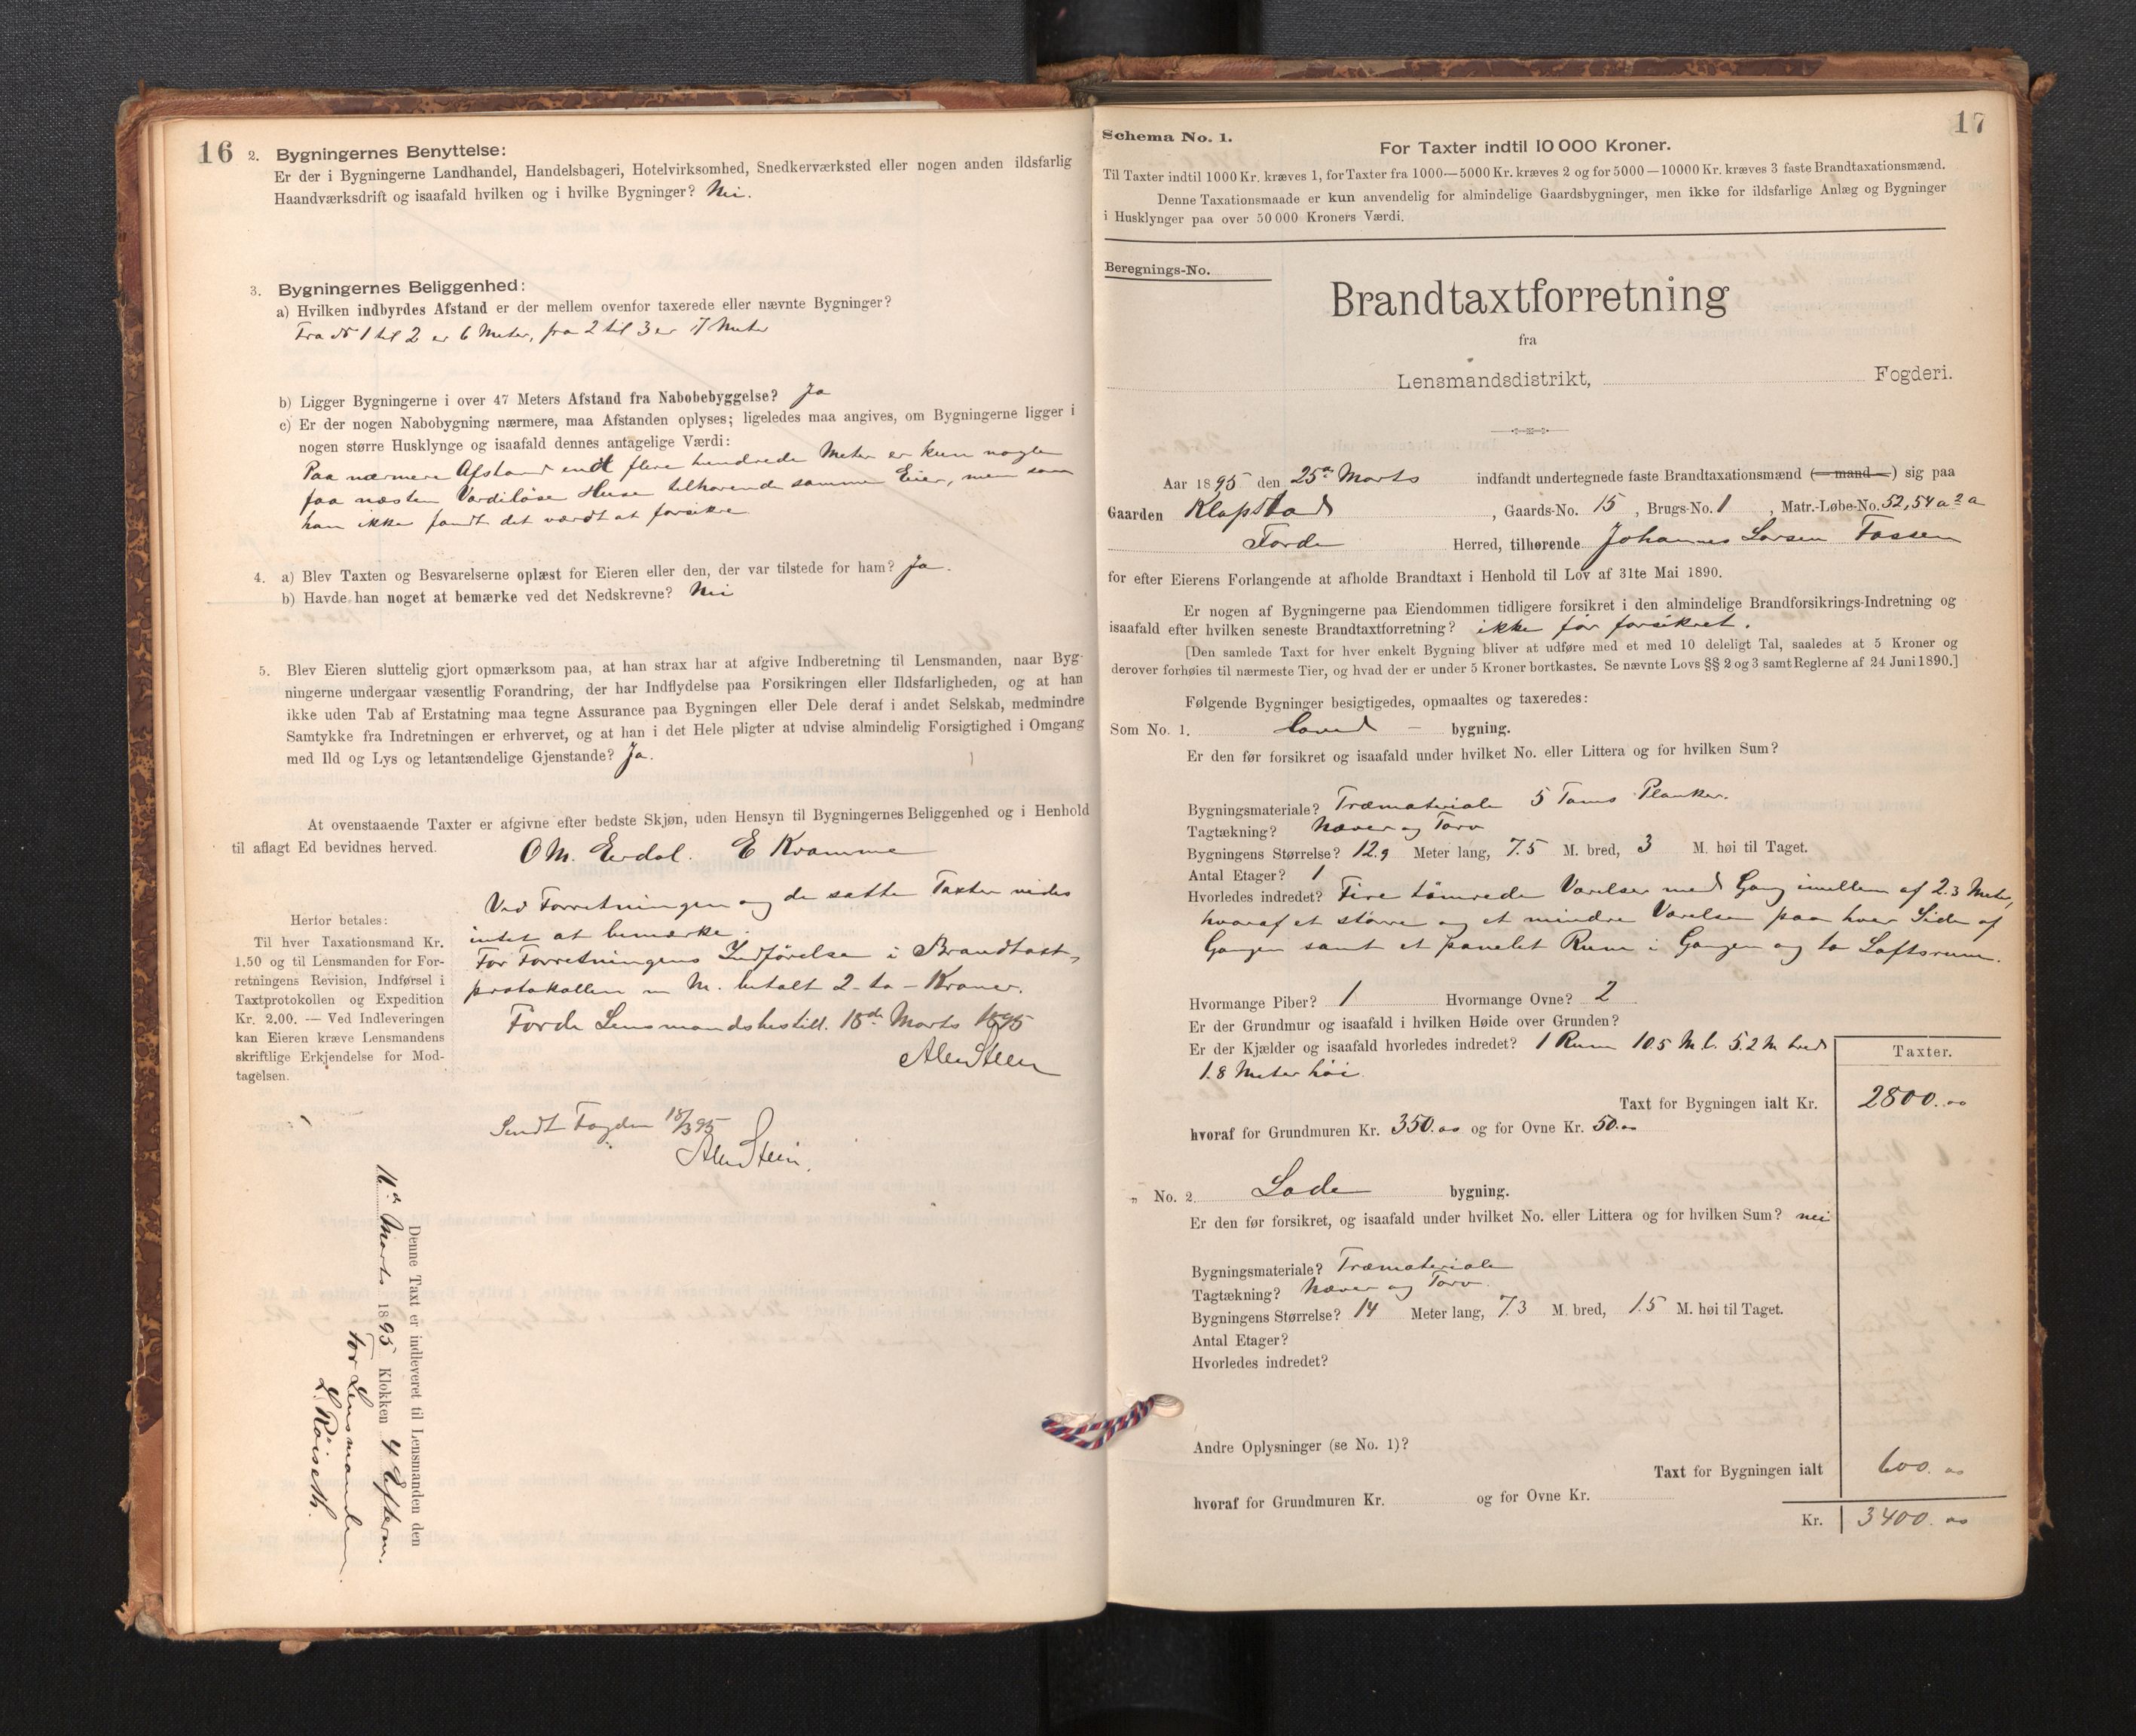 16
2. Bygningernes Benyttelse:
Er der i Bygningerne Landhandel, Handelsbageri, Hotelvirksomhed, Snedkerværksted eller nogen anden ildsfarlig
Haandværksdrift og isaafald hvilken og i hvilke Bygninger? Nei.
3. Bygningernes Beliggenhed:
a) Hvilken indbyrdes Afstand er der mellem ovenfor taxerede eller nævnte Bygninger?
Fra No 1 til 2 er 6 Meter, fra 2 til 3 er 17 Meter
b) Ligger Bygningerne i over 47 Meters Afstand fra Nabobebyggelse? Ja
c) Er der nogen Nabobygning nærmere, maa Afstanden oplyses; ligeledes maa angives, om Bygningerne ligger i
nogen større Husklynge og isaafald dennes antagelige Værdi:
Paa nærmere Afstand endt flere hundrede Meter er kun nogle
faa næsten Værdiløse Huse tilhørende samme Eier, men som
han ikke fandt det værdt at forsikre
4. a) Blev Taxten og Besvarelserne oplæst for Eieren eller den, der var tilstede for ham? Ja.
b) Havde han noget at bemærke ved det Nedskrevne? Nei
5. Blev Eieren sluttelig gjort opmærksom paa, at han strax har at afgive Indberetning til Lensmanden, naar Byg-
ningerne undergaar væsentlig Forandring, der har Indflydelse paa Forsikringen eller Ildsfarligheden, og at han
ikke uden Tab af Erstatning maa tegne Assurance paa Bygningen eller Dele deraf i andet Selskab, medmindre
Samtykke fra Indretningen er erhvervet, og at han i det Hele pligter at udvise almindelig Forsigtighed i Omgang
med Ild og Lys og letantændelige Gjenstande? Ja.
At ovenstaaende Taxter er afgivne efter bedste Skjøn, uden Hensyn til Bygningernes Beliggenhed og i Henhold
til aflagt Ed bevidnes herved.
O M. Erdal. E Kramme
Ved Forretningen og de satte Taxter vides
intet at bemærke.
For Forretningens Indførelse i Brandtaxt-
protokollen m M. betalt 2 - to - Kroner.
Førde Lensmandsbestill. 18de Marts 1895
Alen Steen
Herfor betales:
Til hver Taxationsmand Kr.
1.50 og til Lensmanden for For-
retningens Revision, Indførsel i
Taxtprotokollen og Expedition
Kr. 2.00. — Ved Indleveringen
kan Eieren kræve Lensmandens
skriftlige Erkjendelse for Mod-
tagelsen.
Sendt Fogden 18/3 95
Alen Steen.
Denne Taxt er indleveret til Lensmanden den
11te Marts 1895 Klokken 4 Efterm.
For Lensmanden
L. Røiseth.
17
Schema No. 1.
For Taxter indtil 10 000 Kroner.
Til Taxter indtil 1000 Kr. kræves 1, for Taxter fra 1000—5000 Kr. kræves 2 og for 5000—10000 Kr. kræves 3 faste Brandtaxationsmænd.
Denne Taxationsmaade er kun anvendelig for almindelige Gaardsbygninger, men ikke for ildsfarlige Anlæg og Bygninger
i Husklynger paa over 50 000 Kroners Værdi.
Beregnings-No.
Brandtaxtforretning
fra
Lensmandsdistrikt, Fogderi.
Aar 1895 den 25de Marts indfandt undertegnede faste Brandtaxationsmænd (— mand —) sig paa
Gaarden Klopstad, Gaards-No. 15, Brugs-No. 1, Matr.-Løbe-No. 52, 54 a 2 a
Førde Herred, tilhørende Johannes Larsen Fossen
for efter Eierens Forlangende at afholde Brandtaxt i Henhold til Lov af 31te Mai 1890.
Er nogen af Bygningerne paa Eiendommen tidligere forsikret i den almindelige Brandforsikrings-Indretning og
isaafald efter hvilken seneste Brandtaxtforretning? ikke før forsikret.
[Den samlede Taxt for hver enkelt Bygning bliver at udføre med et med 10 deleligt Tal, saaledes at 5 Kroner og
derover forhøies til nærmeste Tier, og hvad der er under 5 Kroner bortkastes. Se nævnte Lovs §§ 2 og 3 samt Reglerne af 24 Juni 1890.]
Følgende Bygninger besigtigedes, opmaaltes og taxeredes:
Som No. 1. — bygning.
Er den før forsikret og isaafald under hvilket No. eller Littera og for hvilken Sum?
Bygningsmateriale? Træmateriale 5 Toms Planker.
Tagtækning? Næver og Torv
Bygningens Størrelse? 12.9 Meter lang, 7.5 M. bred, 3 M. høi til Taget.
Antal Etager? 1
Hvorledes indredet? Fire tømrede Værelser med Gang imellem af 2.3 Meter,
hvoraf et større og et mindre Værelse paa hver Side af
Gangen samt et panelet Rum i Gangen og to Loftsrum.
Hvormange Piber? 1 Hvormange Ovne? 2
Er der Grundmur og isaafald i hvilken Høide over Grunden?
Er der Kjælder og isaafald hvorledes indredet? 1 Rum 10.5 M. l. 5.2 M bred
1.8 Meter høi.
Taxter.
Taxt for Bygningen ialt Kr. 2800.00
hvoraf for Grundmuren Kr. 350.00 og for Ovne Kr. 50.00
„ No. 2. Lade bygning.
Er den før forsikret, og isaafald under hvilket No. eller Littera og for hvilken Sum? nei
Bygningsmateriale? Træmateriale
Tagtækning? Næver og Torv.
Bygningens Størrelse? 14 Meter lang, 7.3 M. bred, 1.5 M. høi til Taget.
Antal Etager?
Hvorledes indredet?
Andre Oplysninger (se No. 1)?
Taxt for Bygningen ialt 600.00
hvoraf for Grundmuren Kr. og for Ovne Kr.
Kr. 3400.00